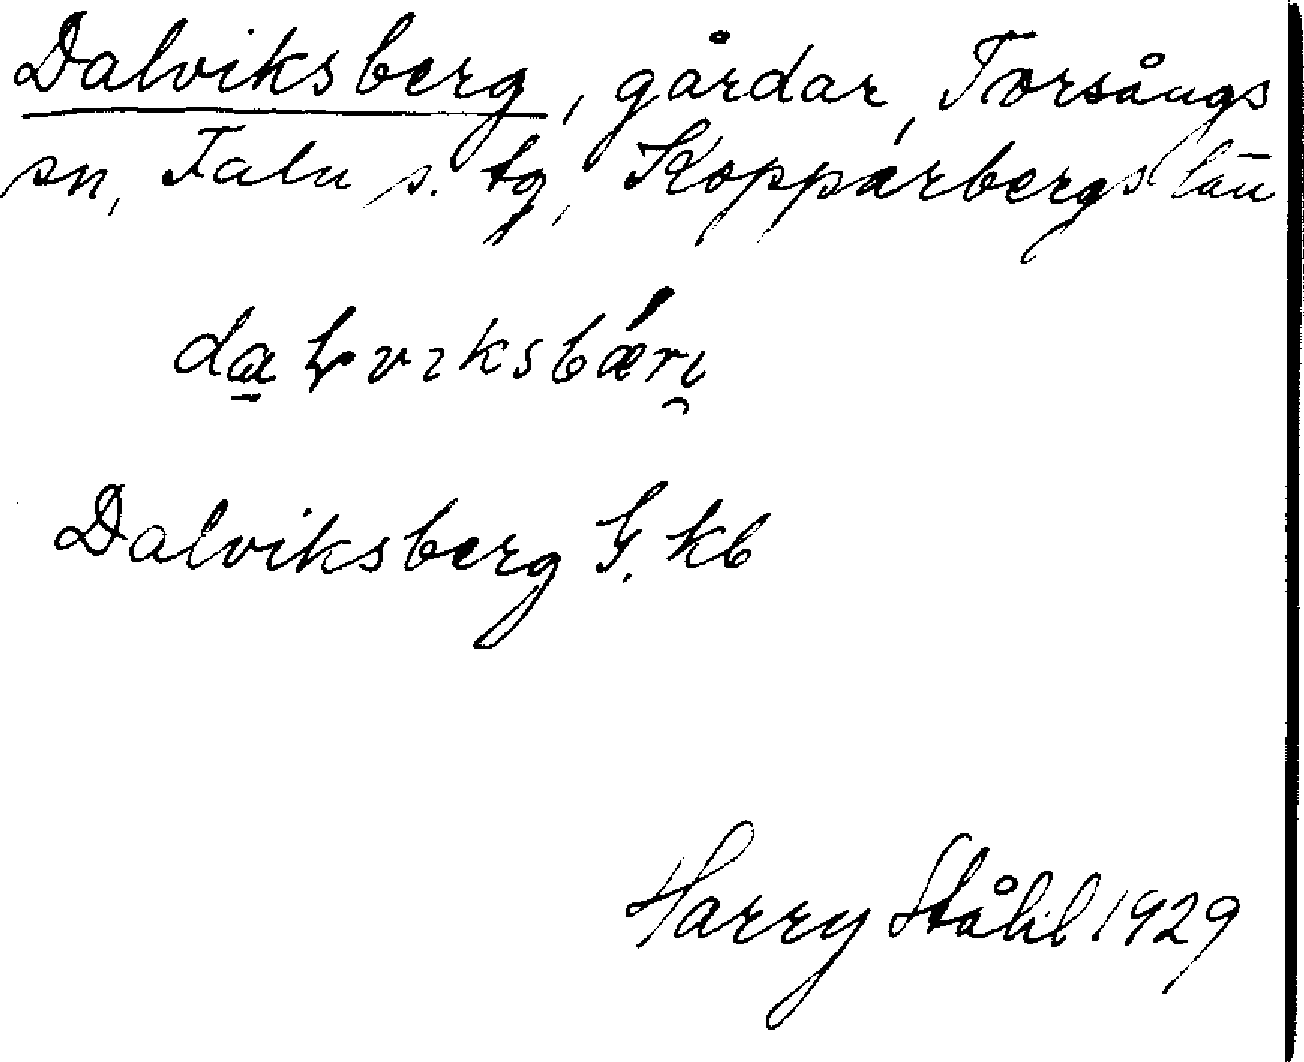 Dalviksberg, gårdar, Torsångs
sn, Falu s. tg, Kopparbergs län
Dalviksberg G. kb
Harry Ståhl 1929